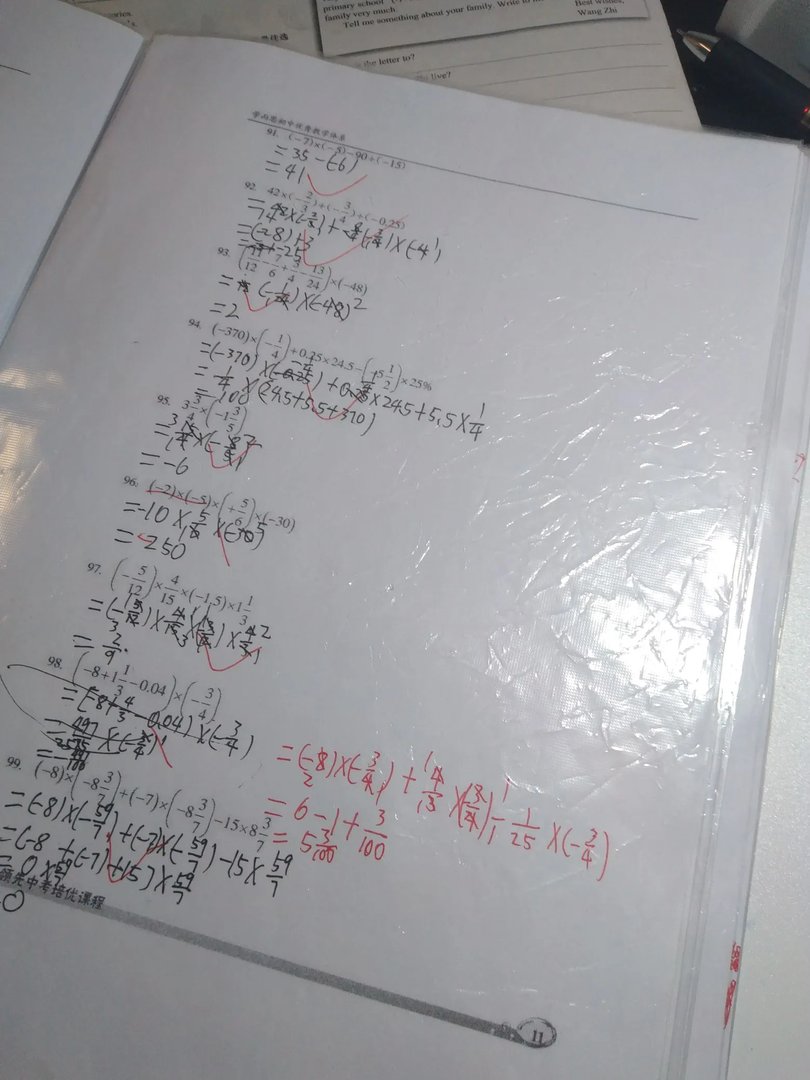 primary school
Best wishes,
family very much
Tell me something about your family. Write to
Wang Zhi
the letter to?
live?
学而思初中优秀教学体系
91. (−7)×(−5)−90÷(−15)
=35−(−6)
=41
92. 42×(−2/3)+(−3/4)÷(−0.25)
=(−28)+3
=−25
93. (11/12−7/6+3/4−13/24)×(−48)
=2
94. (−370)×(−1/4)+0.25×24.5−(−5 1/2)×25%
=(−370)×(−1/4)+0.25×24.5+5.5×1/4
=1/4×(24.5+5.5+370)
=100
95. 3 3/4×(−1 3/5)
=−6
96. (−2)×(−5)×(+5/6)×(−30)
=−10×5/6×(−30)
=250
97. (−5/12)×4/15×(−1.5)×1 1/3
=2/9.
98. (−8+1 1/3−0.04)×(−3/4)
=(−8+4/3−0.04)×(−3/4)
=(−8)×(−3/4)+4/3×(−3/4)−1/25×(−3/4)
=6−1+3/100
=5 3/100
99. (−8)×(−8 3/7)+(−7)×(−8 3/7)−15×8 3/7
=(−8)×(−59/7)+(−7)×(−59/7)−15×59/7
=(−8+(−7)+15)×59/7
=0×59/7
0
领先中考培优课程
11